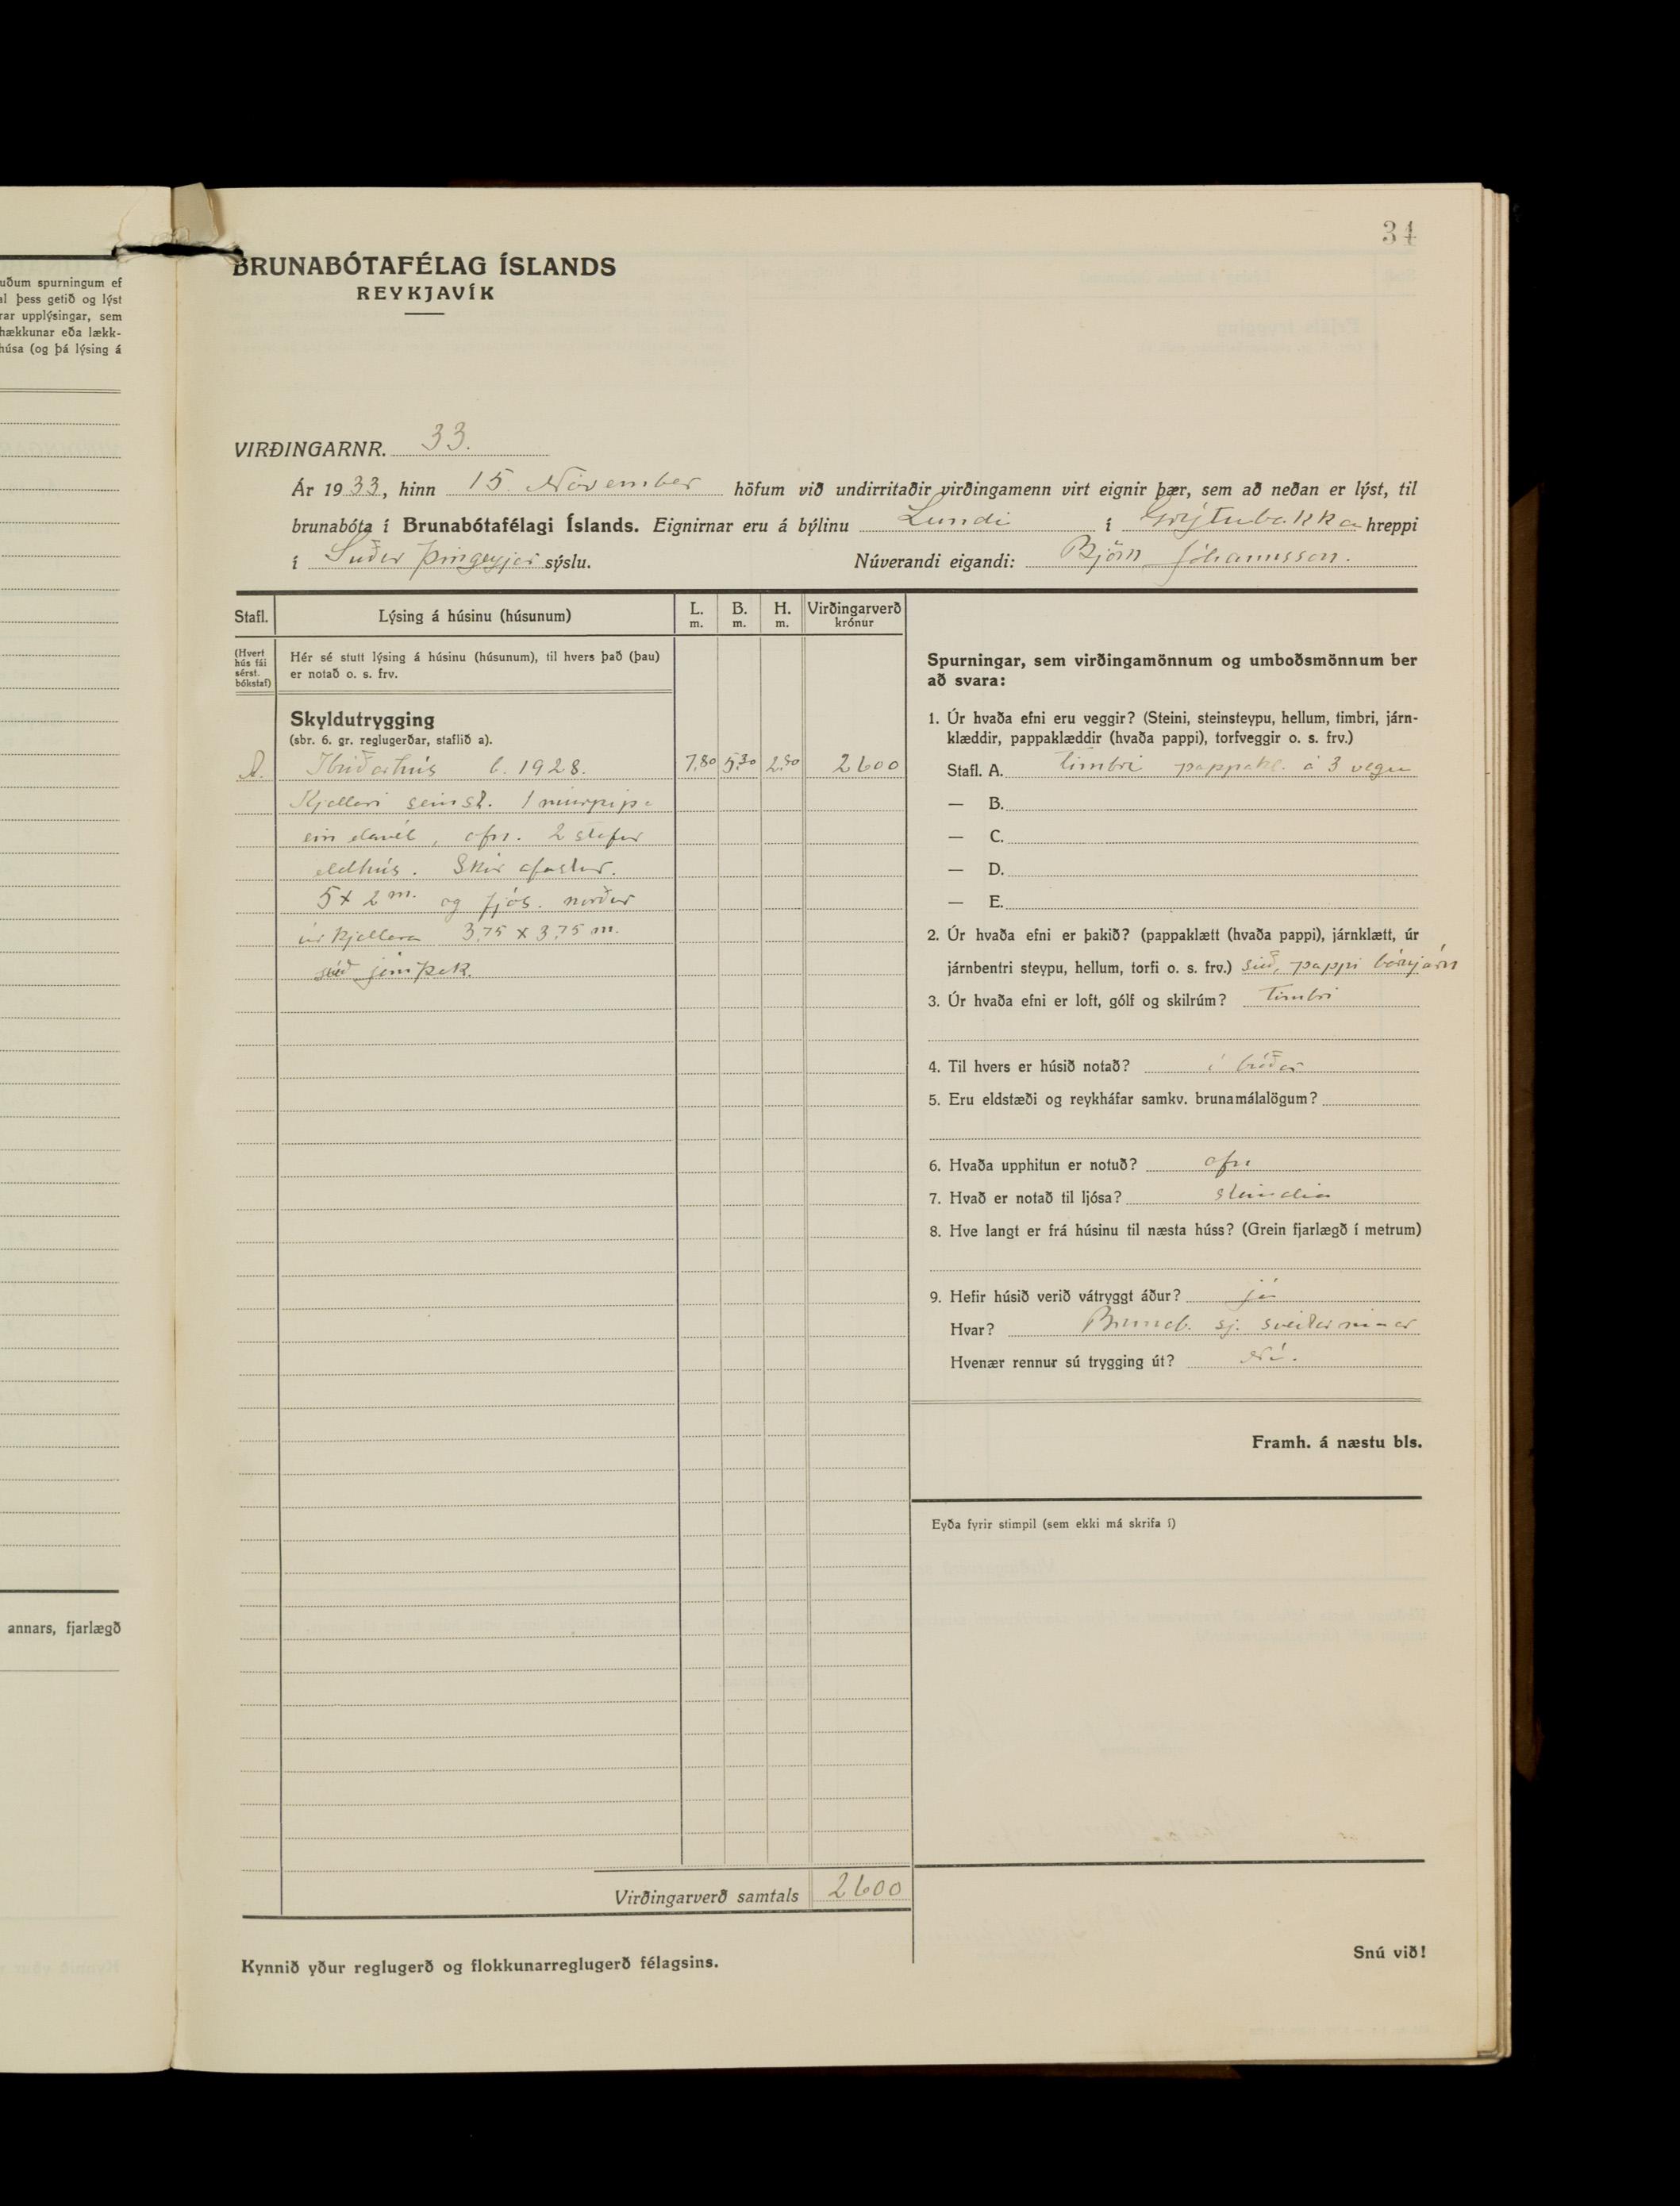 34
uðum spurningum ef
al þess getið og lýst
rar upplýsingar, sem
hækkunar eða lækk-
húsa (og þá lýsing á
annars, fjarlægð
BRUNABÓTAFÉLAG ÍSLANDS
REYKJAVÍK
VIRÐINGARNR. 33.
Ár 1933, hinn 15. November höfum við undirritaðir virðingamenn virt eignir þær, sem að neðan er lýst, til
brunabóta í Brunabótafélagi Íslands. Eignirnar eru á býlinu Lundi í Grýtubakka hreppi
í Suður Þingeyjar sýslu. Núverandi eigandi: Björn Jóhannsson.
Stafl. Lýsing á húsinu (húsunum) L. m. B. m. H. m. Virðingarverð krónur
(Hvert hús fái sérst. bókstaf)
Hér sé stutt lýsing á húsinu (húsunum), til hvers það (þau)
er notað o. s. frv.
Skyldutrygging
(sbr. 6. gr. reglugerðar, staflið a).
A. Íbúðarhús b. 1928. 7.80 5.30 2.50 2600
Kjellari 1 múrpípa
ein elavél, ofn. 2 stofur
eldhús. Skúr áfastur.
5 x 2 m. og fjós. norður
úr kjellara 3.75 x 3.75 m.
járnþak.
Virðingarverð samtals 2600
Kynnið yður reglugerð og flokkunarreglugerð félagsins.
Spurningar, sem virðingamönnum og umboðsmönnum ber
að svara:
1. Úr hvaða efni eru veggir? (Steini, steinsteypu, hellum, timbri, járn-
klæddir, pappaklæddir (hvaða pappi), torfveggir o. s. frv.)
Stafl. A. timbri pappakl. á 3 vegu
— B.
— C.
— D.
— E.
2. Úr hvaða efni er þakið? (pappaklætt (hvaða pappi), járnklætt, úr
járnbentri steypu, hellum, torfi o. s. frv.) súð, pappi bárujárn
3. Úr hvaða efni er loft, gólf og skilrúm? timbri
4. Til hvers er húsið notað? íbúðar
5. Eru eldstæði og reykháfar samkv. brunamálalögum?
6. Hvaða upphitun er notuð? ofn
7. Hvað er notað til ljósa? steinolía
8. Hve langt er frá húsinu til næsta húss? (Grein fjarlægð í metrum)
9. Hefir húsið verið vátryggt áður? já
Hvar? Brunab. sj. sveitarinnar
Hvenær rennur sú trygging út? Nú.
Framh. á næstu bls.
Eyða fyrir stimpil (sem ekki má skrifa í)
Snú við!